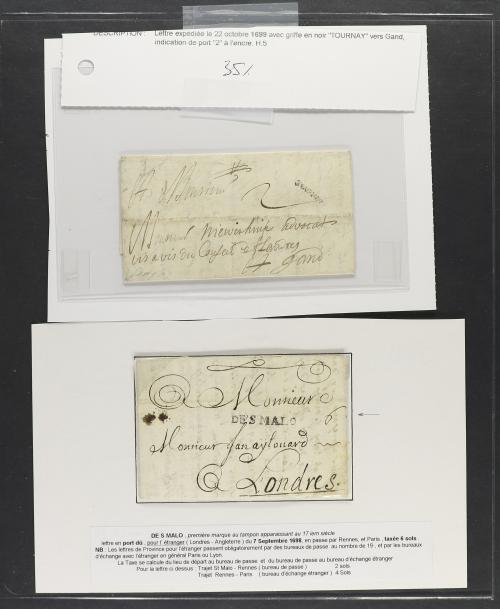 DESCRIPTION : Lettre expédiée le 22 octobre 1699 avec griffe en noir "TOURNAY" vers Gand,
indication de port "2" à l'encre. H.5
35%
A Monsieur
2
TOURNAY
Monsieur advocat
vis a vis du Conseil de flandres
A gand
A Monsieur
6
DE S MALO
Monsieur Jan aylouard
A Londres.
DE S MALO , première marque au tampon apparaissant au 17 ièm siècle
lettre en port dû : pour l' étranger ( Londres - Angleterre ) du 7 Septembre 1698, en passe par Rennes, et Paris , taxée 6 sols .
NB : Les lettres de Province pour l'étranger passent obligatoirement par des bureaux de passe au nombre de 19 , et par les bureaux
d'échange avec l'étranger en général Paris ou Lyon.
La Taxe se calcule du lieu de départ au bureau de passe et du bureau de passe au bureau d'échange étranger
Pour la lettre ci dessus : Trajet St Malo - Rennes ( bureau de passe ) 2 sols.
Trajet Rennes - Paris ( bureau d'échange étranger ) 4 Sols